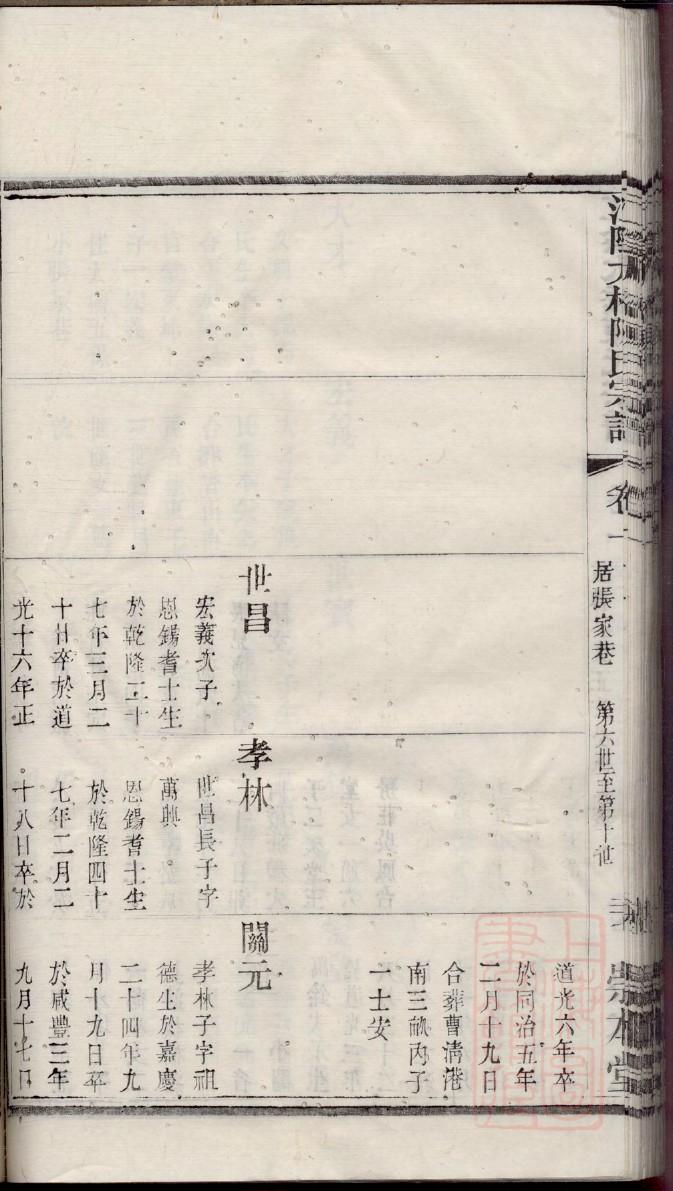 宗譜
卷一
居張家巷
第六世至第十世
崇本堂
世昌
宏義次子
恩錫耆士生
於乾隆二十
七年三月二
十日卒於道
光十六年正
孝林
世昌長子字
萬興。
恩錫耆士生
於乾隆四十
七年二月二
十八日卒於
道光六年卒
於同治五年
二月十九日
合葬曹淸港
南三畝丙子
一士安
關元
孝林子字祖
德生於嘉慶
二十四年九
月十九日卒
於咸豐三年
九月十七日